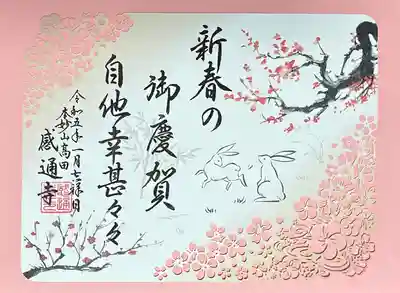 新春の
御慶賀
自他幸甚々々
令和五年一月七禄日
本妙山高田
感通寺